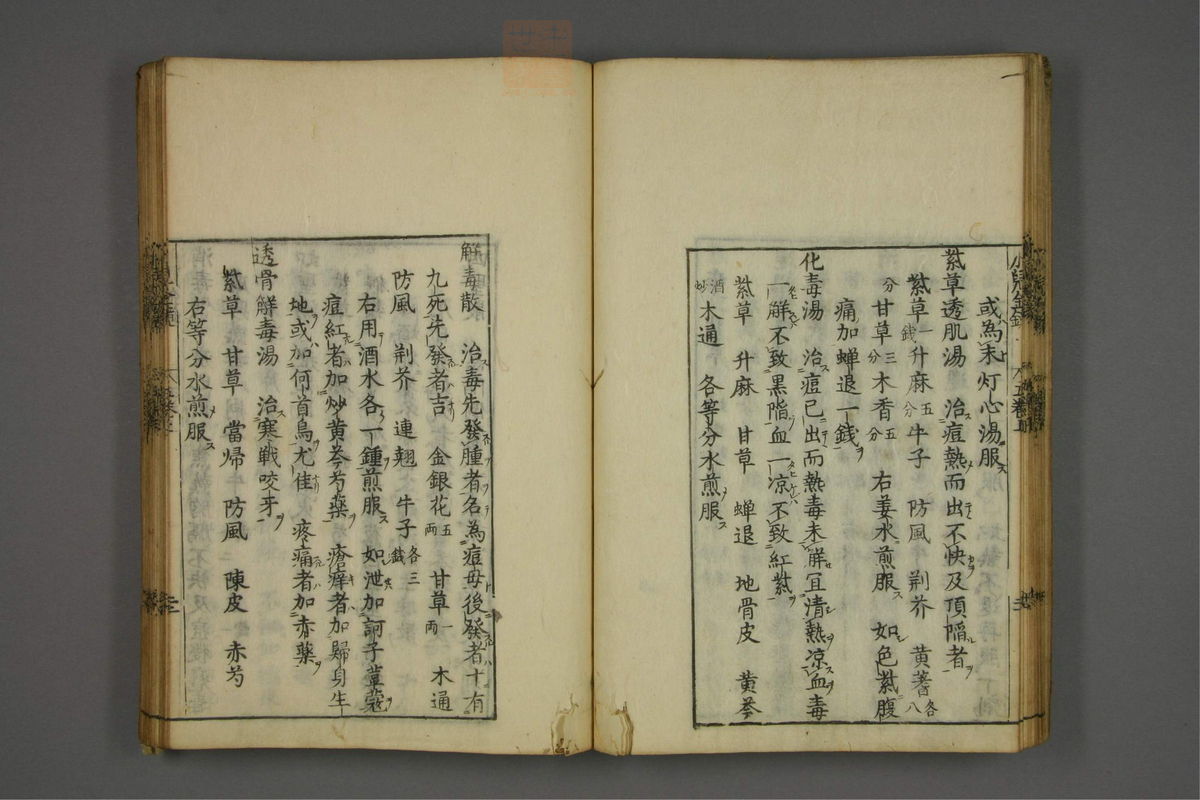 或為末灯心湯服
紫草透肌湯　治痘熱而出不快及頂陷者
紫草一錢升麻五分牛子　防風　荆芥　黄蓍各八
分甘草三分木香五分　右姜水煎服　如色紫腹
痛加蟬退一錢
化毒湯　治痘已出而熱毒未解冝清熱凉血毒
一解不致黒陷血一凉不致紅紫
紫草　升麻　甘草　蟬退　地骨皮　黄芩
酒炒木通　各等分水煎服
解毒散　治毒先發腫者名為痘毋後發者十有
九死先發者吉　金銀花五両　甘草一両　木通
防風　荆芥　連翹　牛子各三錢
右用酒水各一鍾煎服　如泄加訶子荳蔲
痘紅者加炒黄芩芍藥　療痒者加歸身生
地或加何首烏尤佳　疼痛者加赤藥
透骨解毒湯　治寒戦咬牙
紫草　甘草　當帰　防風　陳皮　赤芍
右等分水煎服